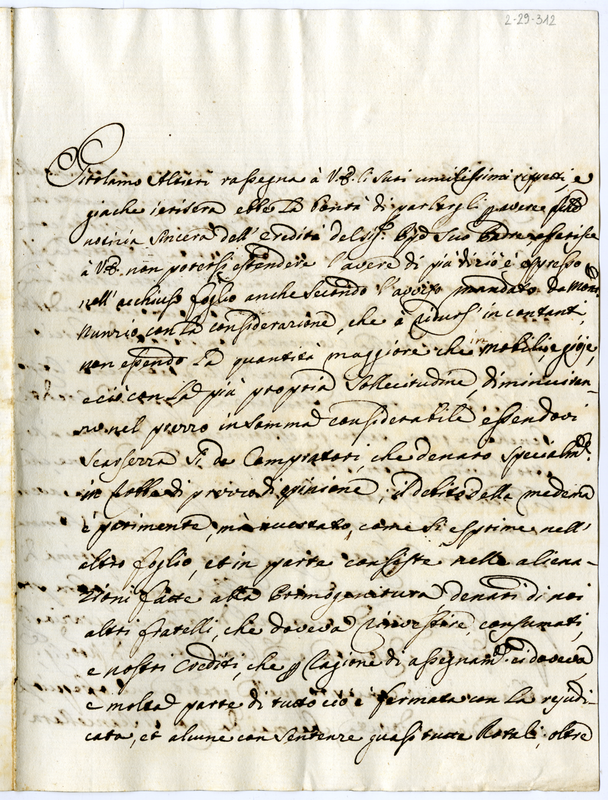 2-29-312
Girolamo Altieri rassegna à V.B. li suoi umilissimi rispetti, e
giache ierisera ebbe la bontà di partecipargli avere
notizia sincera dell'eredità del Sig.r suo Padre,
à V.B. non potersi estendere l'avere di più di ciò è espresso
nell'acchiuso foglio anche secondo l'avviso mandato da Mons.
Nunzio, con la considerazione, che à ridursi in contanti,
non essendo la quantità maggiore che in mobili e gioie,
e ciò con la più propria sollecitudine, diminuiran-
no nel prezzo in somma considerabile essendovi
scarsezza sì de Compratori, che denaro specialm.
in robba di prezzo di opinione, il debito della medesima
è parimente, come si esprime nell'
altro foglio, et in parte consiste nelle aliena-
zioni fatte alla Primogenitura, denari di noi
altri fratelli, che doveva rinvestire, consumati,
e nostri Crediti, che p ragione di assegnam. ci doveva
e molta parte di tutto ciò è fermata con la rejudi-
cata, et alcune con sentenze quasi tutte Rotali, oltre